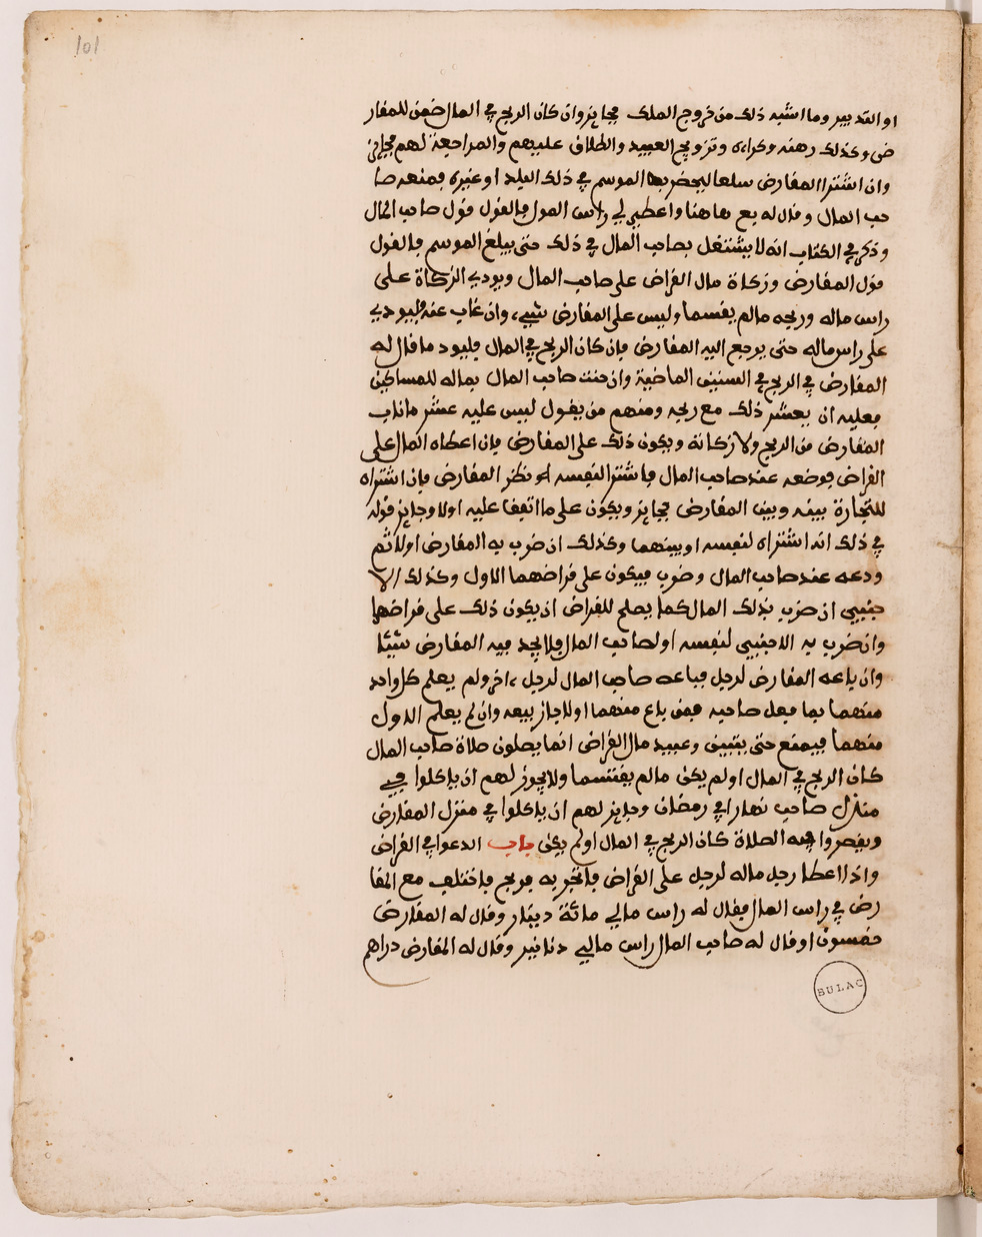 101
او التدبير وما اشبه ذلك من خروج الملك فجايز وان كان الربح في المال ضمن للمقار
ض وكذلك رهنه وكراءه وتزويج العبيد والطلاق عليهم والمراجعة لهم فجايز
وان اشترا المقارض سلعا ليحضر بها الموسم في ذلك البلد او غيره فمنعه صا
حب المال وقال له بع هاهنا واعطيني لي راس المول فالقول قول صاحب المال
وذكر في الكتاب انه لا يشتغل بصاحب المال في ذلك حتى يبلغ الموسم فالقول
قول المقارض وزكاة مال القراض على صاحب المال ويودي الزكاة على
راس ماله وربحه مالم يقسما وليس على المقارض شيء، وان غاب عنه فليودي
على راس ماله حتى يرجع اليه المقارض فان كان الربح في المال فليود ما قال له
المقارض في الربح في السنين الماضية وان حنث صاحب المال بماله للمساكين
فعليه ان يعشر ذلك مع ربحه ومنهم من يقول ليس عليه عشر ما ناب
المقارض من الربح ولا زكاته ويكون ذلك على المقارض فان اعطاه المال على
القراض فوضعه عند صاحب المال فاشترا لنفسه او نظر المقارض فان اشتراه
للتجارة بينه وبين المقارض فجايز ويكون على ما اتفقا عليه اولا وجايز قوله
في ذلك انه اشتراه لنفسه او بينهما وكذلك ان ضرب به المقارض اولا ثم
ودعه عند صاحب المال وضرب فيكون على قراضهما الاول وكذلك الا
جنبي ان ضرب بذلك المال كما يصلح للقراض ان يكون ذلك على قراضها
وان ضرب به الاجنبي لنفسه او لصاحب المال فلا يجد فيه المقارض شيئا
وان باعه المقارض لرجل فباعه صاحب المال لرجل ،اخر ولم يعلم كل واحد
منهما بما فعل صاحبه فمن باع منهما اولا جاز بيعه وان لم يعلم الاول
منهما فيمنع حتى يتبين وعبيد مال القراض انما يصلون صلاة صاحب المال
كان الربح في المال او لم يكن مالم يقتسما ولا يجوز لهم ان ياكلوا في
منازل صاحب نهارا في رمضان وجايز لهم ان ياكلوا في منزل المقارض
ويقصروا فيه الصلاة كان الربح في المال او لم يكن باب الدعوا في القراض
واذا اعطا رجل ماله لرجل على القراض فاتجر به فربح فاختلف مع المقا
رض في راس المال فقال له راس مالي مائة دينار وقال له المقارض
خمسون او قال له صاحب المال راس مالي دنانير وقال له المقارض دراهم
BULAC